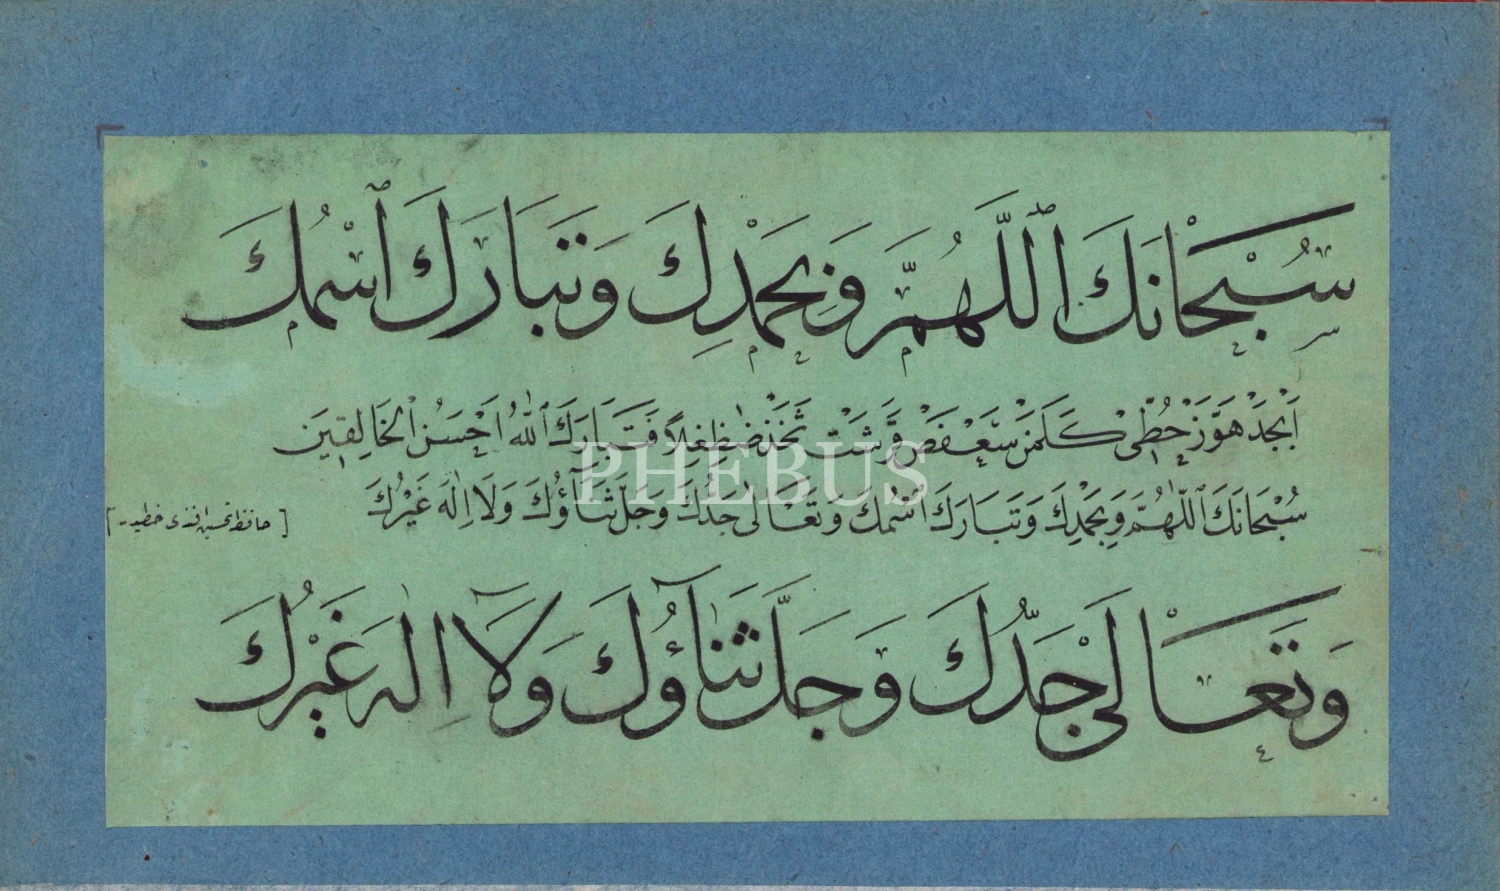 سُبْحَانَكَ ٱللَّهُمَّ وَبِحَمْدِكَ وَتَبَارَكَ ٱسْمُكَ
اَبْجَدْ هَوَّزْ حُطِّىْ كَلَمَنْ سَعْفَصْ قَرَشَتْ ثَخَّذْ ضَظِغِلاً فَتَبَارَكَ ٱللّٰهُ اَحْسَنُ ٱلْخَالِقِينَ
سُبْحَانَكَ ٱللّٰهُمَّ وَبِحَمْدِكَ وَتَبَارَكَ ٱسْمُكَ وَتَعَالٰى جَدُّكَ وَجَلَّ ثَنَآؤُكَ وَلَا اِلٰهَ غَيْرُكَ
[حافظ تحسين افندى خطيدر]
وَتَعَالَىْ جَدُّكَ وَجَلَّ ثَنَآؤُكَ وَلَآ اِلٰهَ غَيْرُكَ
PHEBUS